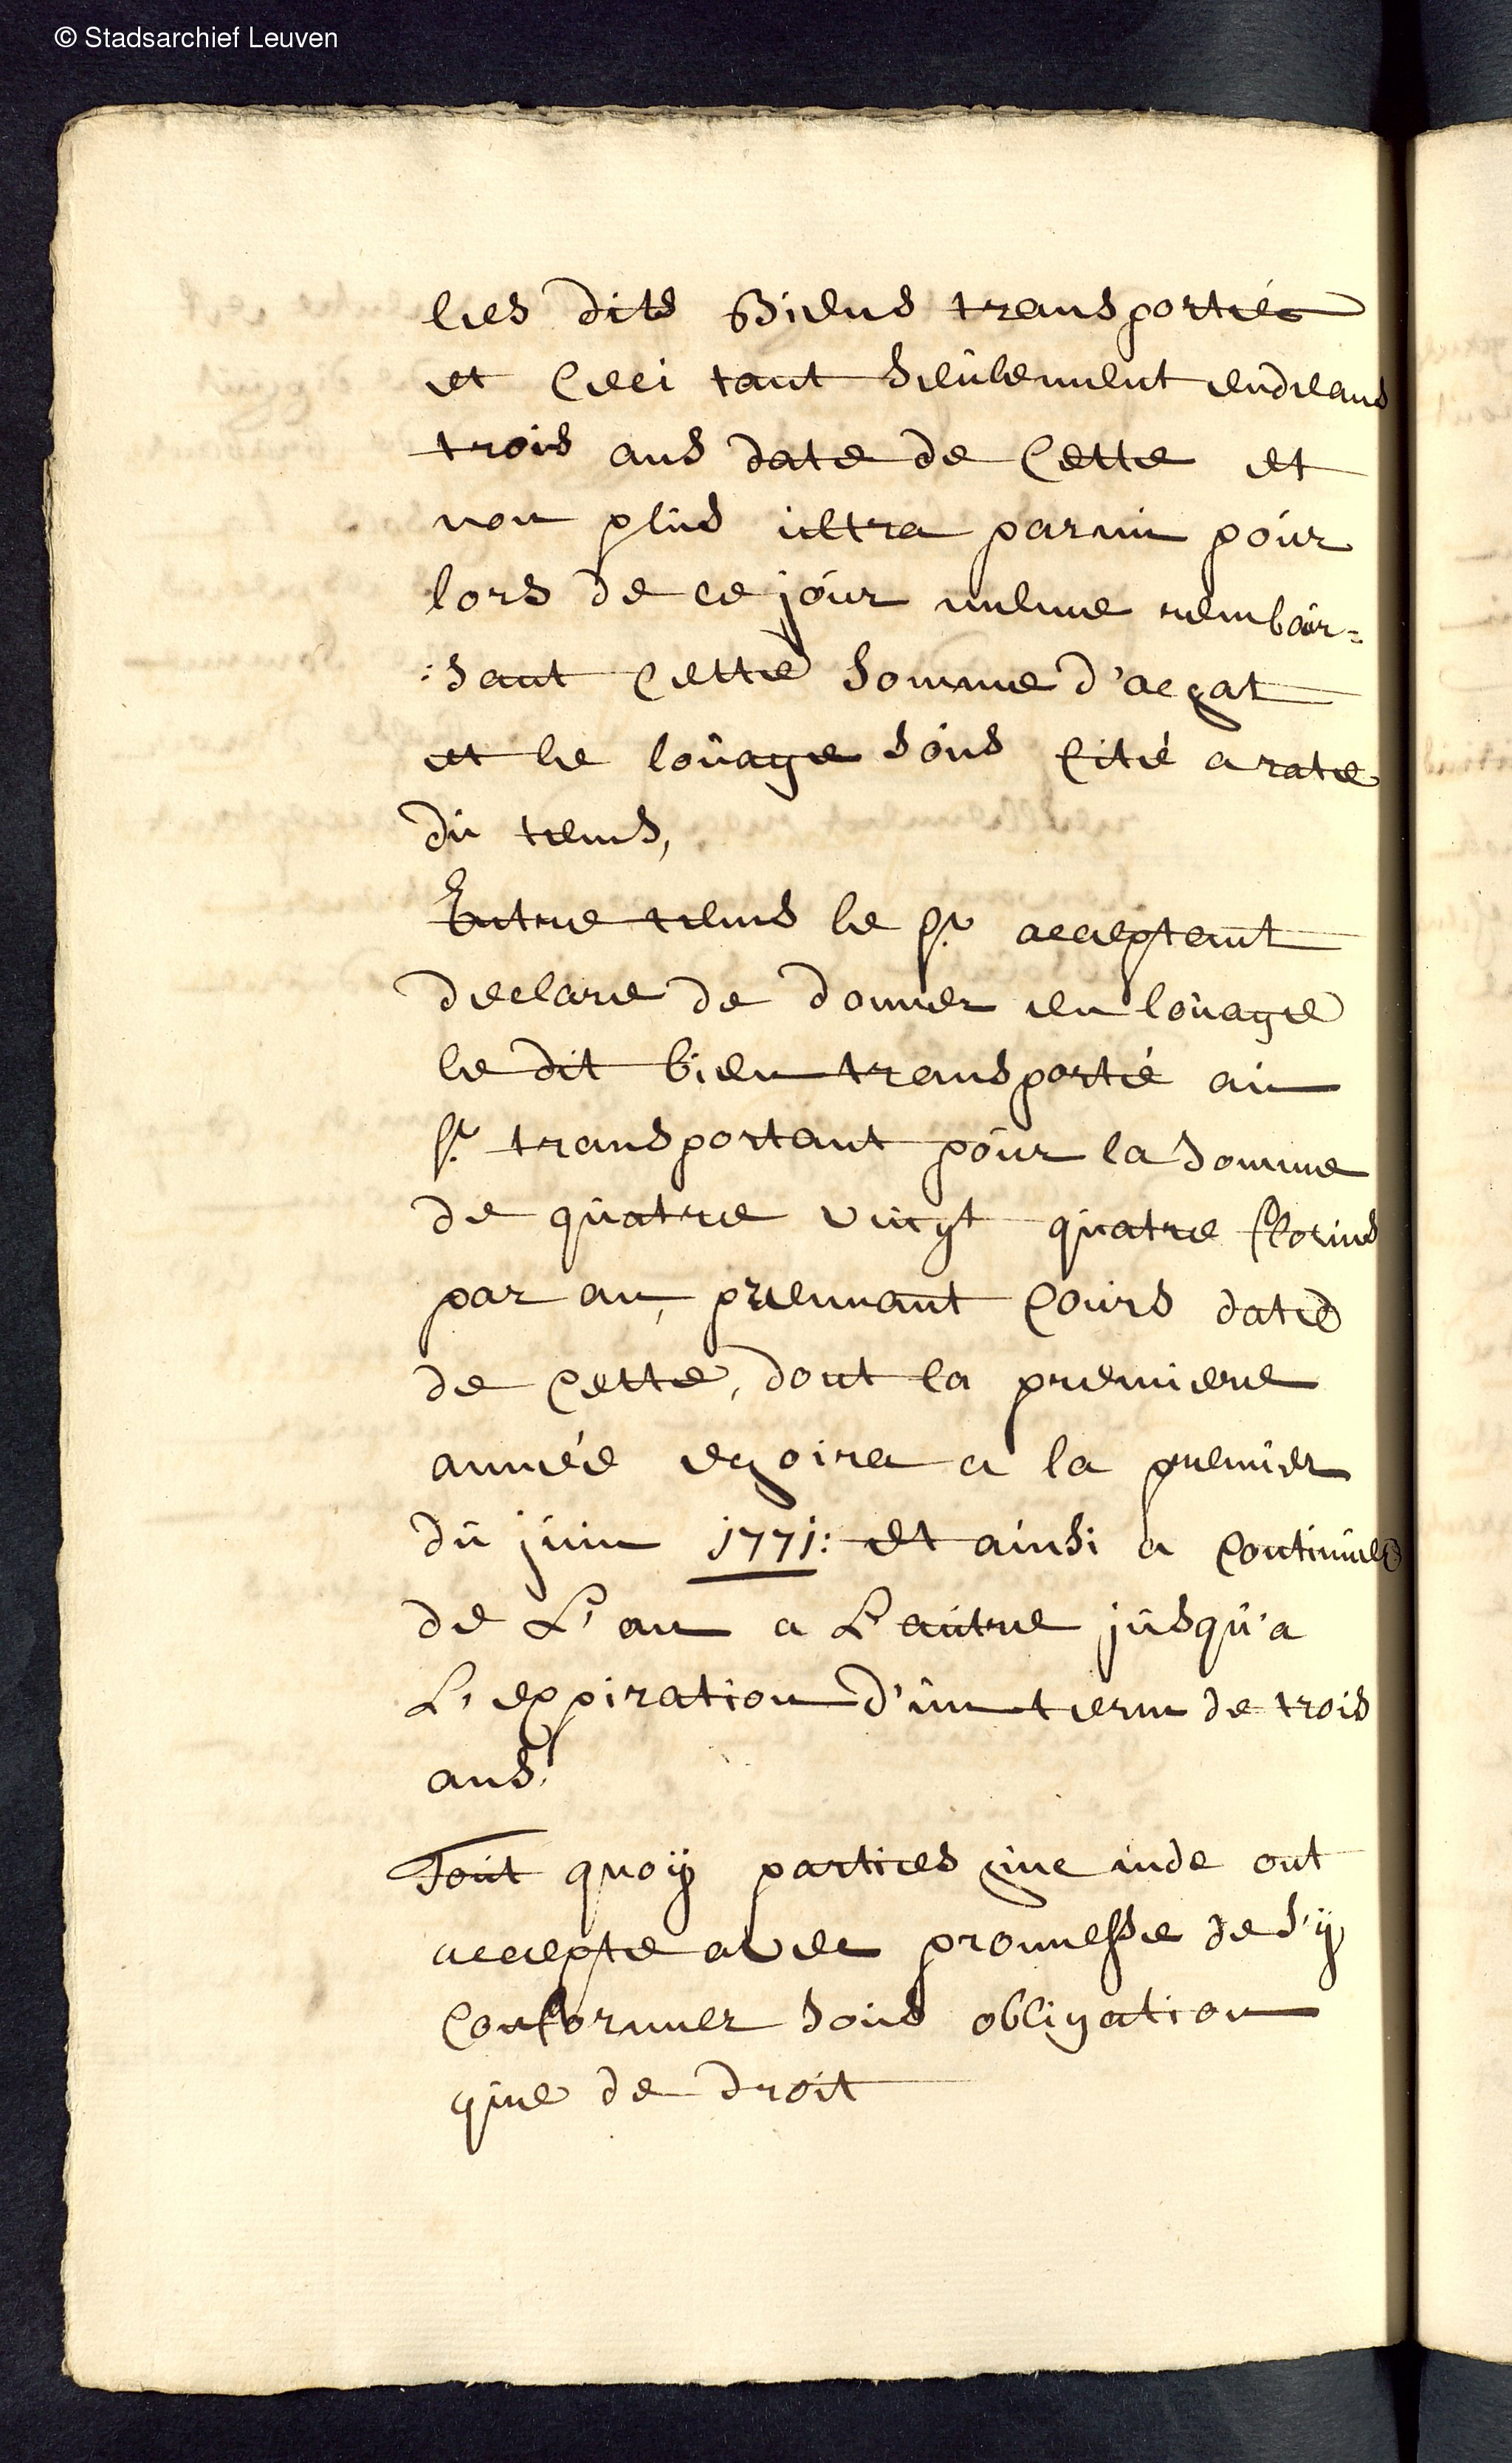 © Stadsarchief Leuven
les dits Biens transportés
et Ceci tant seulement endeans
trois ans date de Cette et
non plus ultra parmi pour
lors de ce jour meme rembour=
:sant Cette somme d'achat
et le loûage sous Cité a rate
du tems,
Entre tems le Sr. acceptant
declare de donner en loûage
le dit bien transporté au
Sr. transportant pour la somme
de quatre vingt quatre florins
par an, prennant Cours date
de Cette, dont la premiere
année echoira a la premier
du juin 1771: et ainsi a Continuer
de L'an a L'autre jusqu'a
L'expiration d'un term de trois
ans.
Tout quoÿ parties hinc inde ont
accepte avec promesse de s'ÿ
Conformer sous obligation
que de droit